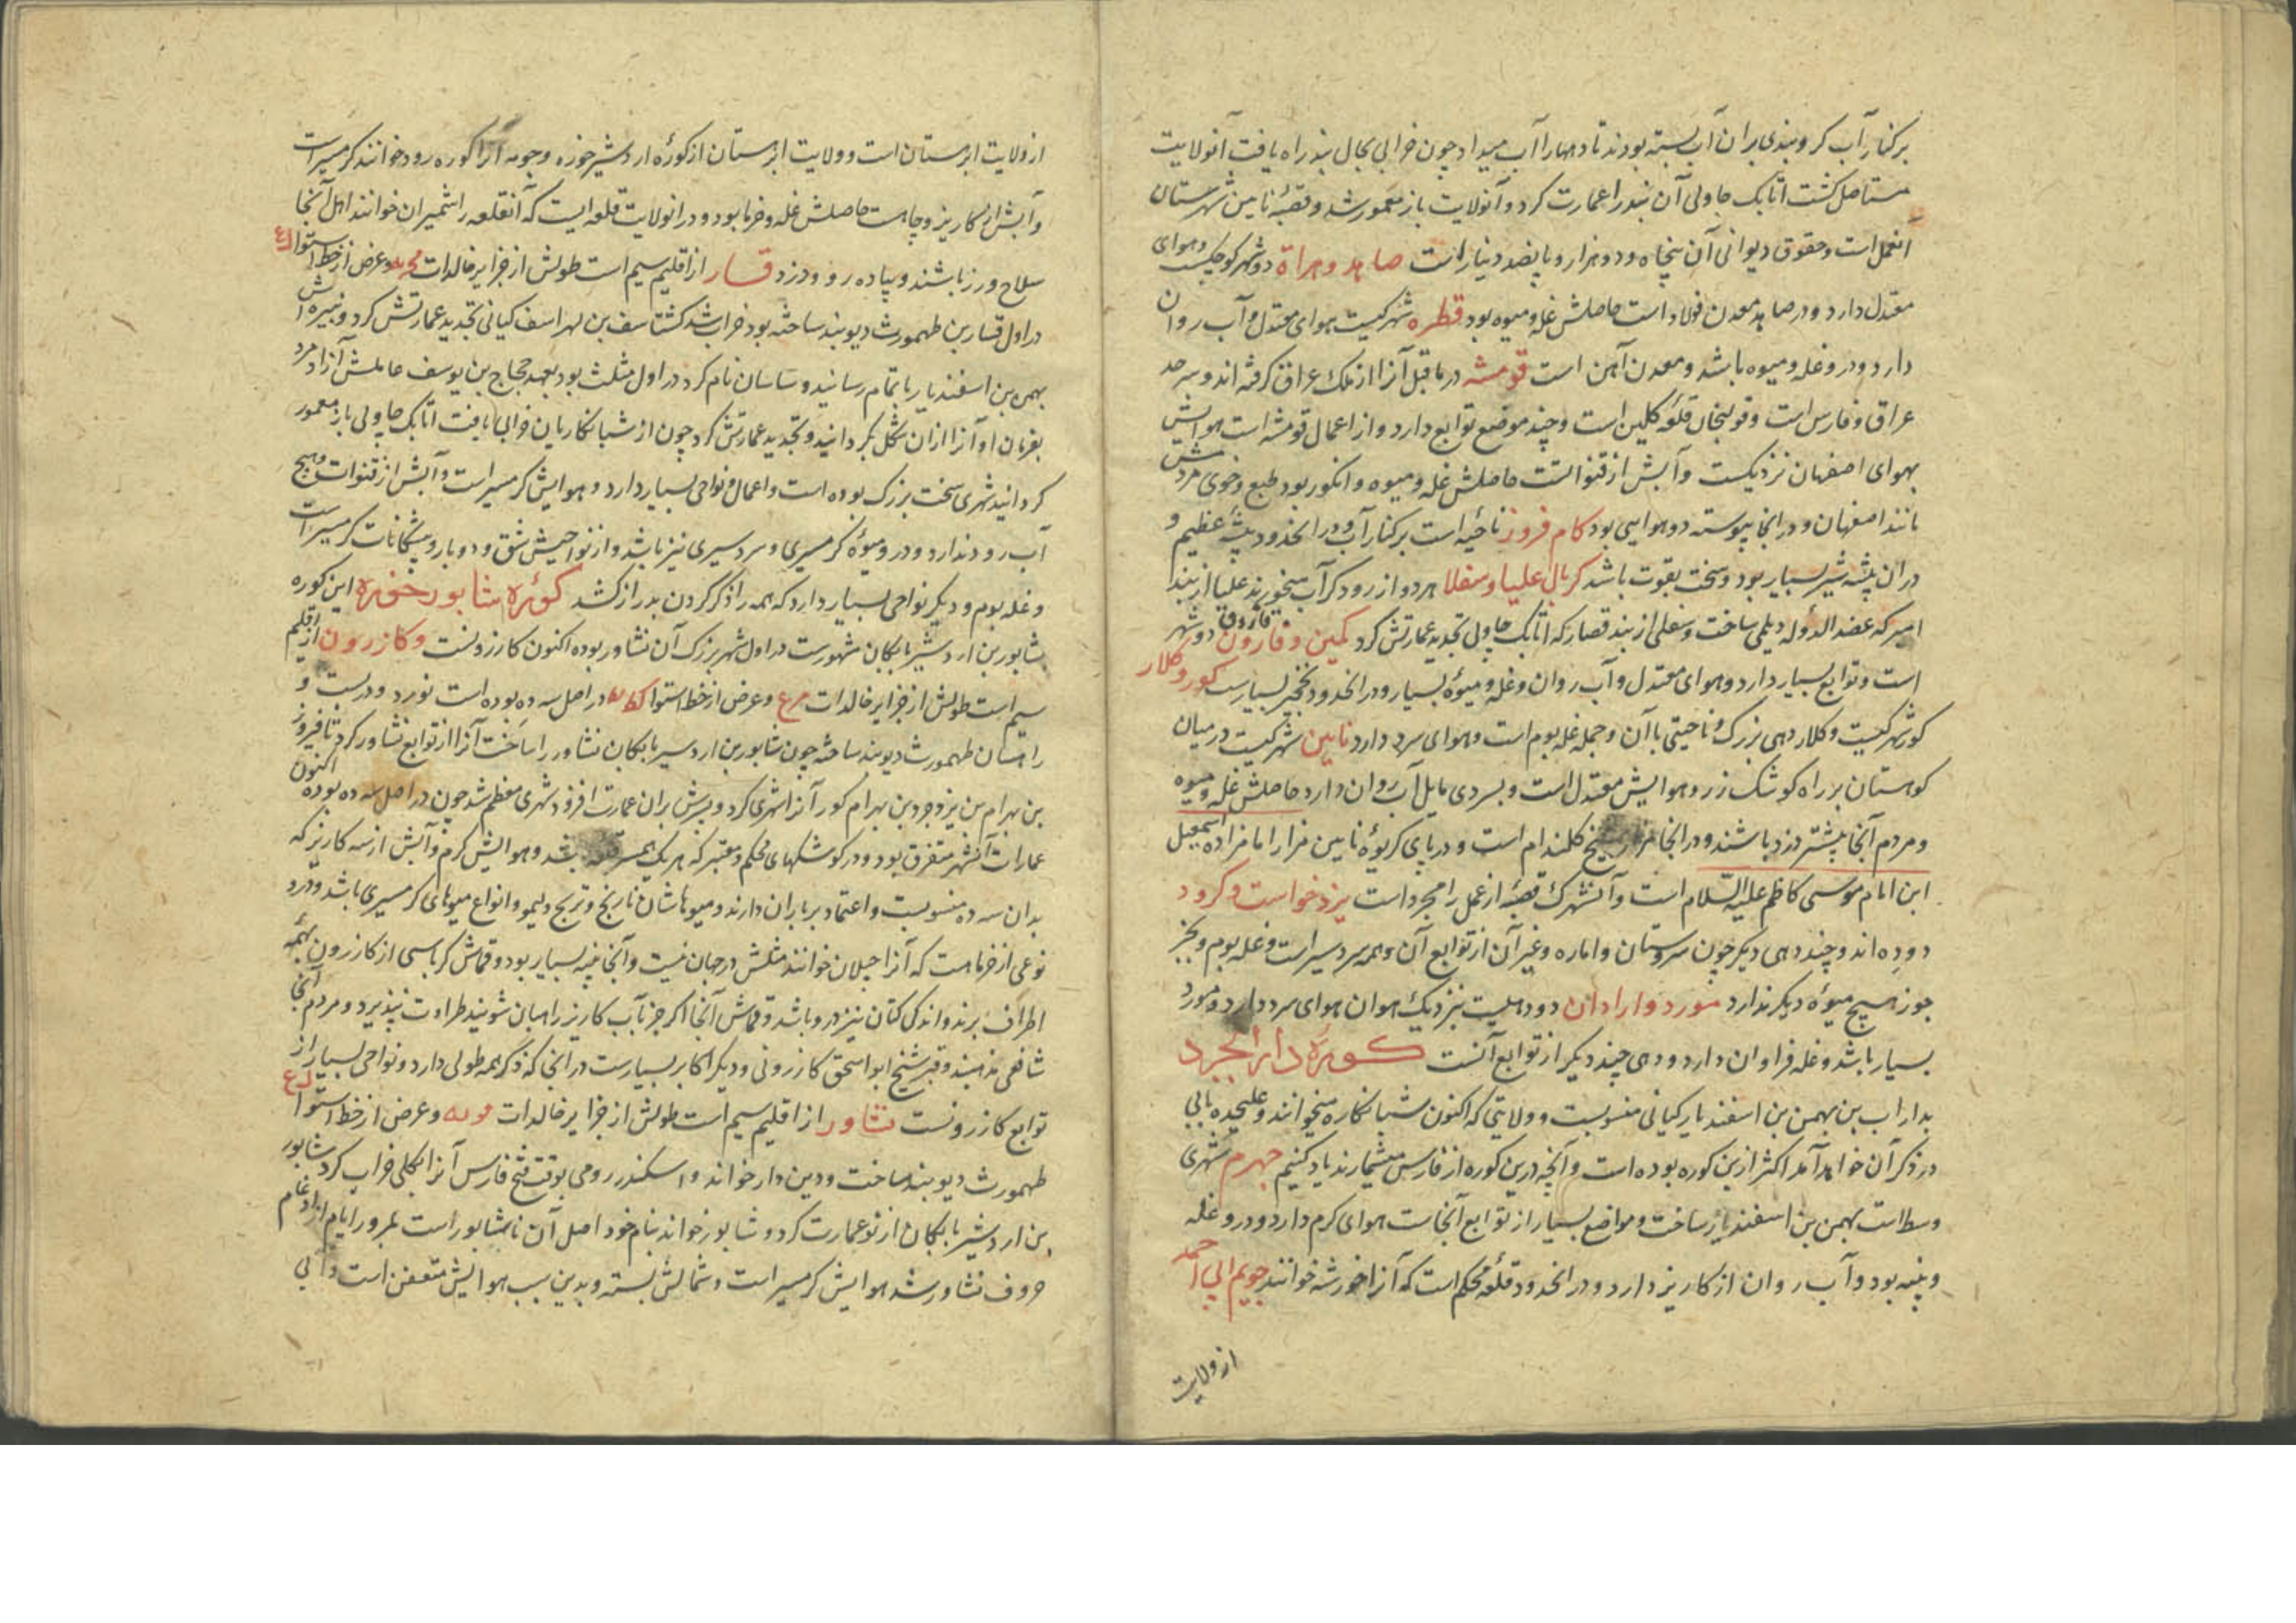 برکنار آب کر و بندی بران آب بسته بودند تا دیهارا آب میداد چون خرابی بحال بند راه یافت آنولایت
مستاصل کشت اتابک جاولی آن بند را عمارت کرد و آنولایت باز معمور شد و قصبهٔ نامین شهرستان
انعمل است و حقوق دیوانی آن پنجاه و دو هزار و پانصد دینار است صاهد و هراة دو شهر کوچکست و هوای
معتدل دارد و در صاهد معدن فولاد است حاصلش غله و میوه بود قطره شهرکیست هوای معتدل و آب روان
دارد و درو غله و میوه باشد و معدن آهن است قومشه در ما قبل آنرا از ملک عراق کرفته اند و سرحد
عراق و فارس است و قولنجان قلعه کلین است و چند موضع توابع دارد و از اعمال قومشه است هوایش
بهوای اصفهان نزدیکست و آبش از قنواتست حاصلش غله و میوه و انکور بود طبع و خوی مردمش
مانند اصفهان و در انجا پیوسته دو هوایی بود کام فروز ناحیه است برکنار آب و در انحدود بیشهٔ عظیم و
در ان بیشه شیر بسیار بود و سخت بقوت باشد کربال علیا و سفلا هر دو از رود کر آب میخورند علیا از بند
امیر که عضد الدوله دیلمی ساخت و سفلی از بند قصار که اتابک چاولی تجدید عمارتش کرد کمین و فارون فاروق دو شهر
است و توابع بسیار دارد و هوای معتدل و آب روان و غله و میوهٔ بسیار و در انحدود نخجیر بسیارست کور و کلار
کور شهرکیست و کلار دهی بزرک و ناحیتی با آن و جمله غله بوم است و هوای سرد دارد نامین شهرکیست در میان
کوهستان بر راه کوشک زر و هوایش معتدل است و بسردی مایل آب روان دارد حاصلش غله و میوه
و مردم آنجا بیشتر دزد باشند و در انجا مزار شیخ کلندام است و در پای کریوهٔ نامین مزار امامزاده اسمعیل
ابن امام موسی کاظم علیه السّلام است و آنشهرک قصبهٔ از عمل رامجرد است یزدخواست و کرود
دو ده اند و چند دهی دیکر چون سروستان و اماره و غیر آن از توابع آن و همه سردسیر است و غله بوم و بجز
جوز هیچ میوهٔ دیکر ندارد مورد و ارادان دو دهیست نزدیک هوان هوای سرد دارد و مورد
بسیار باشد و غله فراوان دارد و دهی چند دیکر از توابع آنست کورهٔ دارابجرد
بداراب بن بهمن بن اسفندیار کیانی منسوبست و ولایتی که اکنون شبانکاره میخوانند و علیحده بابی
در ذکر آن خواهد آمد اکثر ازین کوره بوده است و آنچه درین کوره از فارس میشمارند یاد کنیم جهرم شهری
وسط است بهمن بن اسفندیار ساخت و مواضع بسیار از توابع آنجاست هوای کرم دارد و درو غله
و پنبه بود و آب روان از کاریز دارد و در انحدود قلعهٔ محکم است که آنرا خورشه خوانند جویم ابی احمد
از ولایت
از ولایت ابرمستان است و ولایت ابرمستان از کورهٔ اردشیر خوره و جویم آنرا کوره رود خوانند کرمسیراست
و آبش از کاریز و چاهست حاصلش غله و خرما بود و در انولایت قلعه ایست که آنقلعه را شمیران خوانند اهل آنجا
سلاح ورز باشند و پیاده رو و دزد فسار از اقلیم سیم است طولش از جزایر خالدات و عرض از خط استوا
در اول فسار بن طهمورث دیوبند ساخته بود خراب شد کشتاسف بن لهراسف کیانی تجدید عمارتش کرد و نبیره اش
بهمن بن اسفندیار باتمام رسانید و ساسان نام کرد در اول مثلث بود بعهد حجاج بن یوسف عاملش آزادمرد
بفرمان او آنرا ازان شکل بکردانید و تجدید عمارتش کرد چون از شبانکاریان خرابی یافت اتابک چاولی باز معمور
کردانید شهری سخت بزرک بوده است و اعمال و نواحی بسیار دارد و هوایش کرمسیر است و آبش از قنوات و هیچ
آب رود ندارد و درو میوهٔ کرمسیری و سردسیری نیز باشد و از نواحیش شق و دوبار و میشکانات کرمسیراست
و غله بوم و دیکر نواحی بسیار دارد که همه را ذکر کردن بدراز کشد کورهٔ شابور خوره این کوره
بشابور بن اردشیر بابکان مشهورست در اول شهر بزرک آن نشاور بوده اکنون کازرونست و کازرون از اقلیم
سیم است طولش از جزایر خالدات و عرض از خط استوا در اصل سه ده بوده است نورد و دربست و
راهبان طهمورث دیوبند ساخته چون شابور بن اردشیر بابکان نشاور را ساخت آنرا از توابع نشاور کرد تا فیروز
بن بهرام بن یزدجرد بن بهرام کور آنرا شهری کرد و پسرش بران عمارت افزود شهری معظم شد چون در اصل سه ده بوده اکنون
عمارات آنشهر متفرق بود و در کوشکهای محکم و معتبر که هر یک همسر قلعه باشد و هوایش کرم و آبش از سه کاریز که
بدان سه ده منسوبست و اعتماد بر باران دارند و میوهاشان نارنج و ترنج و لیمو و انواع میوهای کرمسیری باشد و درو
نوعی از خرماست که آنرا جیلان خوانند مثلش در جهان نیست و آنجا پنبه بسیار بود و قماش کرباسی از کازرون بهمه
اطراف برند و اندکی کتان نیز درو باشد و قماش آنجا اکر جز بآب کاریز راهبان شویند طراوت نپذیرد و مردم آنجا
شافعی مذهبند و قبر شیخ ابو اسحق کازرونی و دیکر اکابر بسیارست در انجا که ذکر همه طولی دارد و نواحی بسیار از
توابع کازرونست نشاور از اقلیم سیم است طولش از جزایر خالدات و عرض از خط استوا
طهمورث دیوبند ساخت و دین دار خواند و اسکندر رومی بوقت فتح فارس آنرا بکلی خراب کرد شابور
بن اردشیر بابکان از نو عمارت کرد و شابور خواند بنام خود اصل آن نا شابور است بمرور ایام از ادغام
حروف نشاور شد هوایش کرمسیر است و شمالش بسته و بدین سبب هوایش متعفن است و آبی